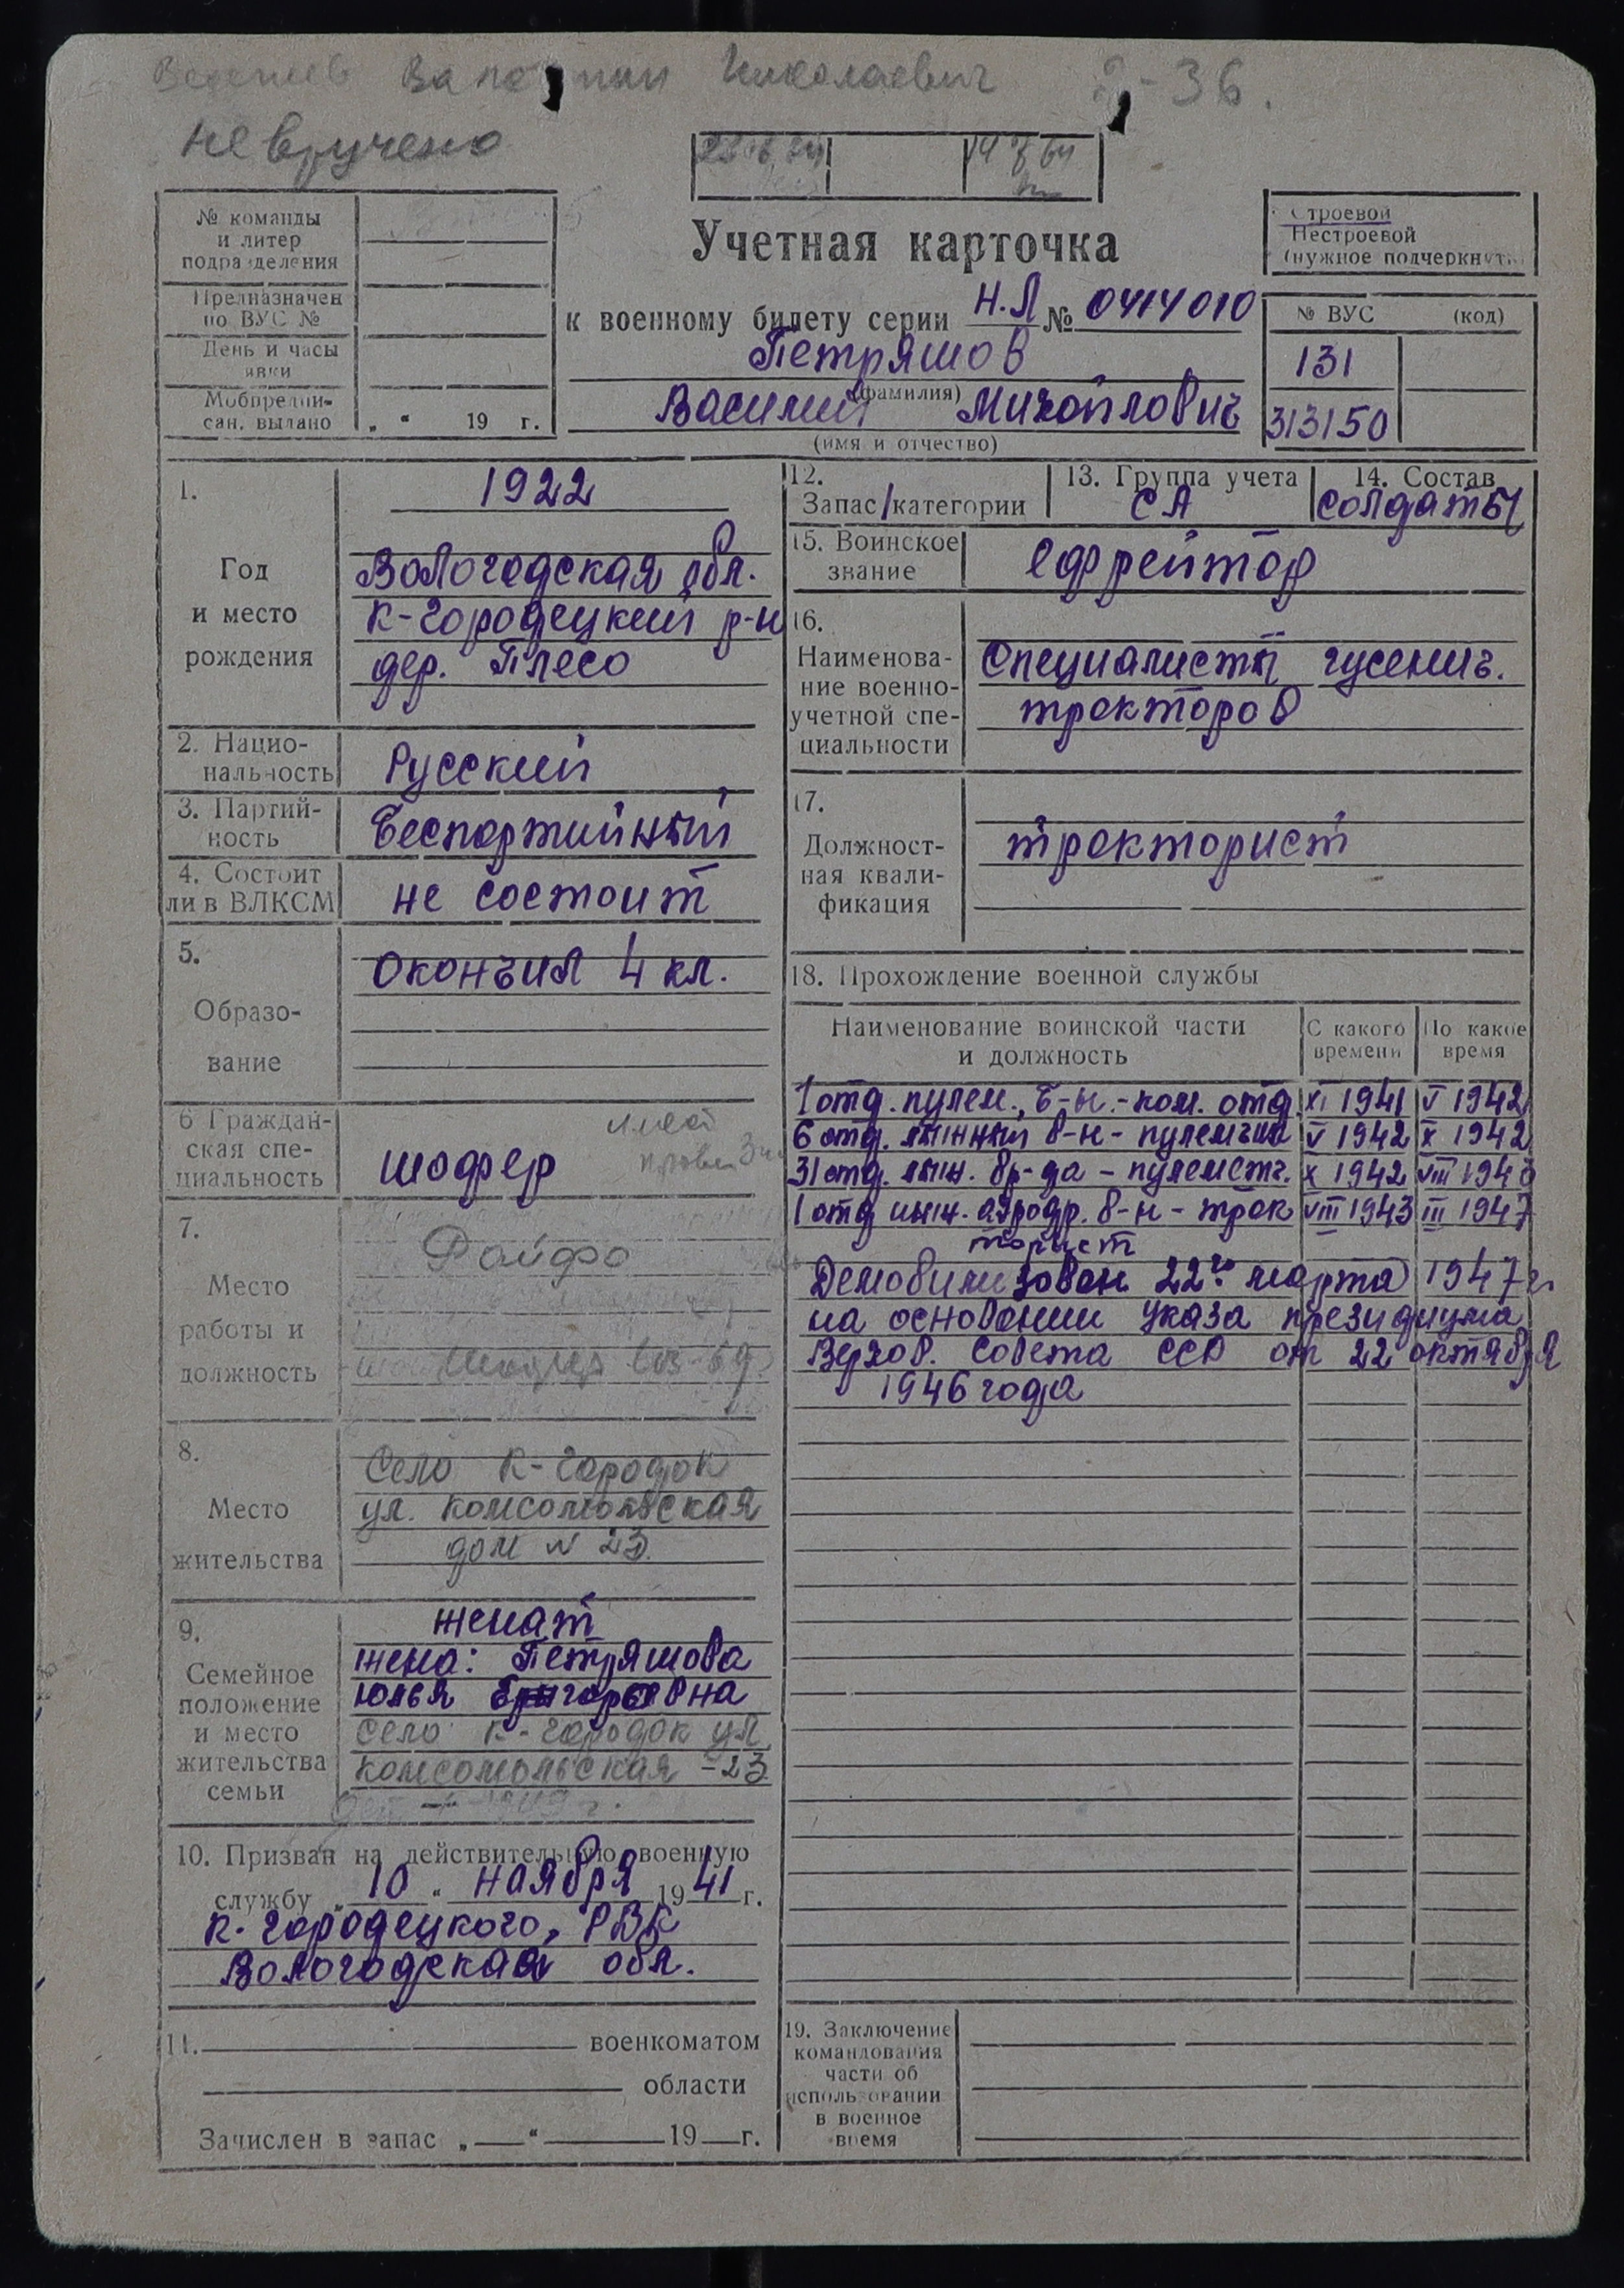 Валентин Николаевич -36.
не вручено
Учетная карточка
к военному билету серии Н.Л № 0414010
Петряшов
(фамилия)
Василий Михайлович
(имя и отчество)
№ команды
и литер
подразделения
Предназначен
по ВУС №
День и часы
явки
Мобпредпи-
сан. выдано „ “ 19 г.
Строевой
Нестроевой
(нужное подчеркнуть)
№ ВУС (код)
131
313150
1.
Год
и место
рождения
1922
Вологодская обл.
К-Городецкий р-н
дер. Плесо
2. Нацио-
нальность
Русский
3. Партий-
ность
Беспартийный
4. Состоит
ли в ВЛКСМ
не состоит
5.
Образо-
вание
Окончил 4 кл.
6 Граждан-
ская спе-
циальность
шофер
7.
Место
работы и
должность
Райфо
шофер
8.
Место
жительства
Село К-Городок
ул. Комсомольская
дом № 23.
9.
Семейное
положение
и место
жительства
семьи
женат
жена: Петряшова
Юлья Григорьевна
Село К-Городок ул
Комсомольская -23.
10. Призван на действительную военную
службу „ 10 “ ноября 1941 г.
К-Городецкого, РВК
Вологодская обл.
11. военкоматом
области
Зачислен в запас „ “ 19 г.
12.
Запас/категории
13. Группа учета
СА
14. Состав
Солдаты
15. Воинское
звание
ефрейтор
16.
Наименова-
ние военно-
учетной спе-
циальности
Специалисты гусенич.
тракторов
17.
Должност-
ная квали-
фикация
тракторист
18. Прохождение военной службы
Наименование воинской части
и должность
С какого
времени
По какое
время
1 отд. пулем., б-н.-ком. отд XI 1941 V 1942
6 отд. лыжный б-н - пулемтчик V 1942 X 1942
31 отд. лыж. бр-да - пулеметч. X 1942 VIII 1943
1 отд инж. аэродр. б-н - трак VIII 1943 III 1947
торист
Демобилизован 22го марта 1947 г.
на основании указа президиума
Верхов. Совета ССР от 22 октября
1946 года
19. Заключение
командования
части об
использовании
в военное
время